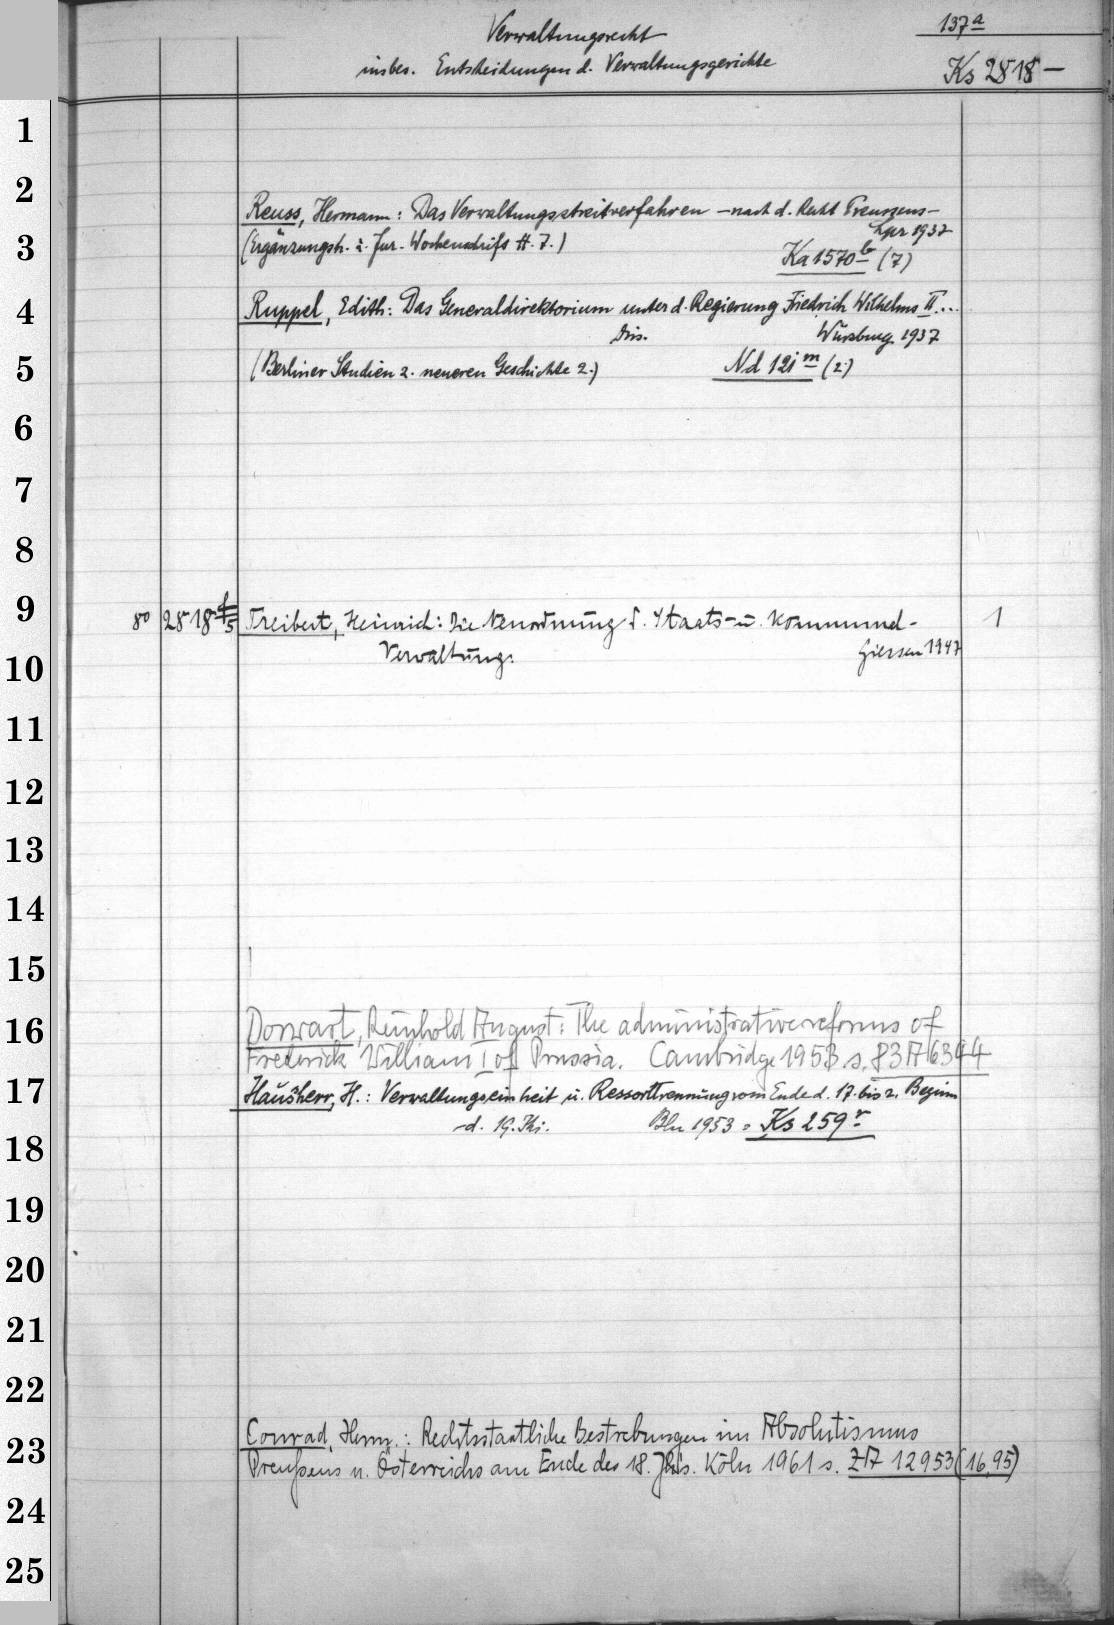 137a
Verwaltungsrecht
insbes. Entscheidungen d. Verwaltungsgerichte
Ks 2818 —
1
2
Reuss, Hermann: Das Verwaltungsstreitverfahren – nach d. Recht Preussens –
Lpz 1937
3
(Ergänzungsh. z. Jur. Wochenschrift H. 7.)
Ka 1570 b (7)
4
Ruppel, Edith: Das Generaldirektorium unter d. Regierung Friedrich Wilhelms II...
Diss. Würzburg 1937
5
(Berliner Studien z. neueren Geschichte 2.)
Nd 121 m (2)
6
7
8
9
80 2818 f/5 Treibert, Heinrich: Die Neuordnung d. Staats- u. Kommunal- 1
10
Verwaltung. Giessen 1947
11
12
13
14
15
16
Dorwart, Reinhold August: The administrative reforms of
Frederick William I of Prussia. Cambridge 1953 s. 83 A 6344
17
Haußherr, H.: Verwaltungseinheit u. Ressorttrennung vom Ende d. 17. bis z. Beginn
d. 19. Jh. Bln 1953 = Ks 259 r
18
19
20
21
22
Conrad, Herm.: Rechtsstaatliche Bestrebungen im Absolutismus
23
Preußens u. Österreichs am Ende des 18. Jhs. Köln 1961 s. ZA 12953 (16,95)
24
25